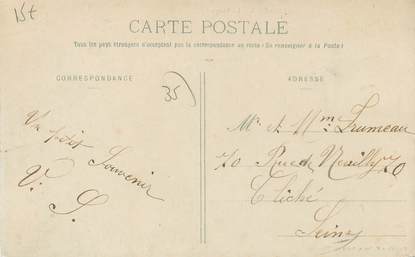 15€
CARTE POSTALE
Tous les pays étrangers n'acceptent pas la correspondance au recto (Se renseigner à la Poste)
CORRESPONDANCE
35
ADRESSE
Un petit
Souvenir
V. S.
Mr et Mme Drumeau
70 Rue de Neuilly 70
Clichi
Seine